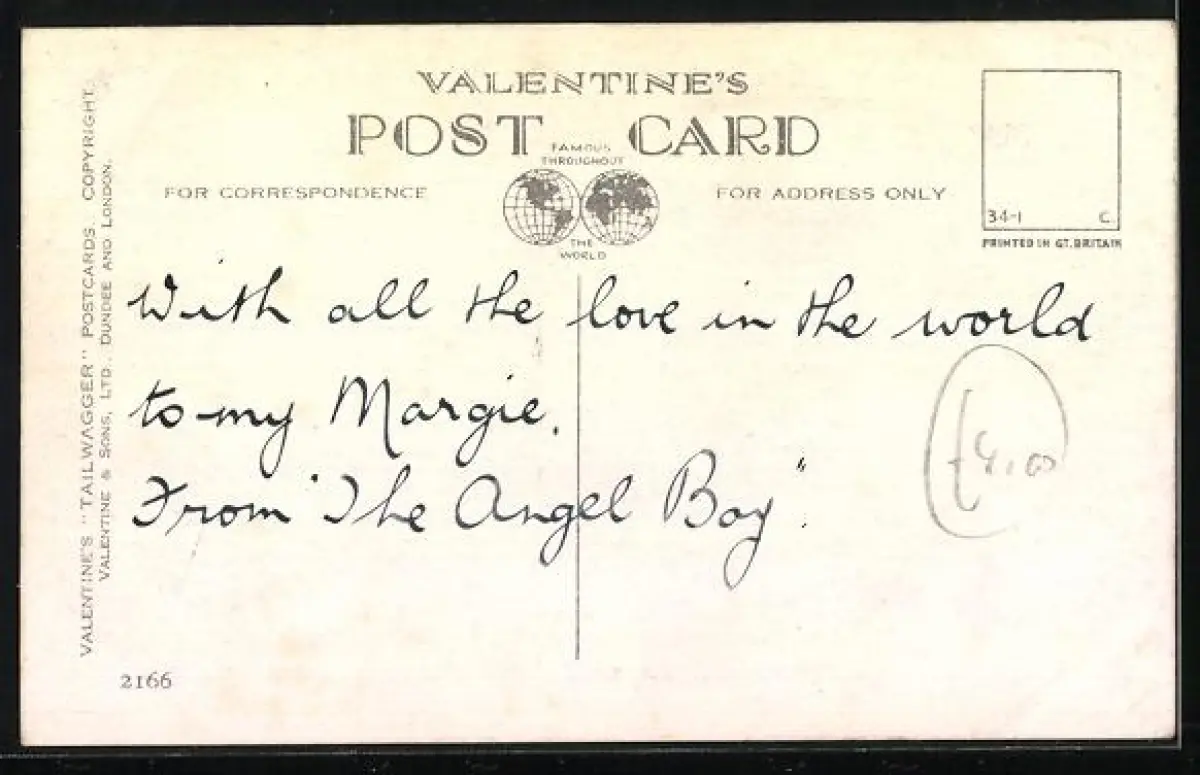 VALENTINE'S
POST CARD
FAMOUS
THROUGHOUT
THE
WORLD
FOR CORRESPONDENCE
FOR ADDRESS ONLY
34-1 C.
PRINTED IN GT. BRITAIN
VALENTINE'S "TAILWAGGER" POSTCARDS. COPYRIGHT.
VALENTINE & SONS, LTD., DUNDEE AND LONDON.
With all the love in the world
to my Margie.
From "The Angel Boy".
2166